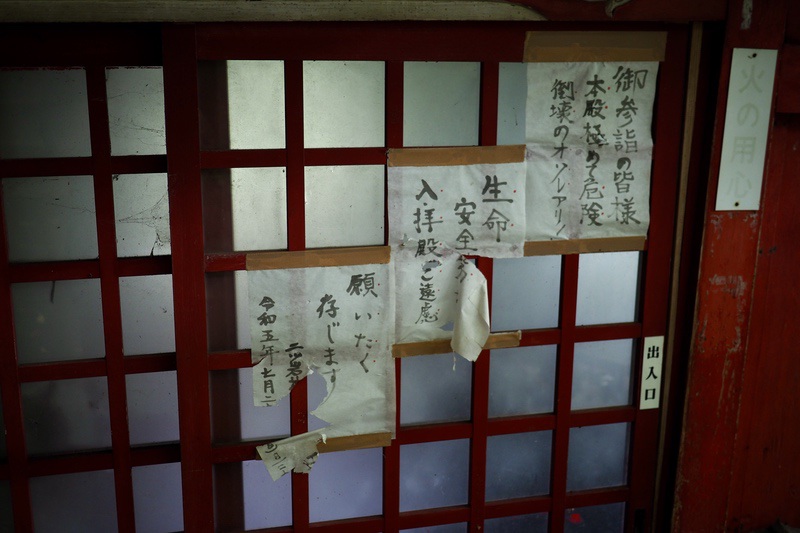 火の用心
御参詣の皆様
本殿極めて危険
倒壊のオソレアリ!
生命
安全
入拝殿ご遠慮
願いたく
存じます
二ツ岩
令和五年七月二
出入口